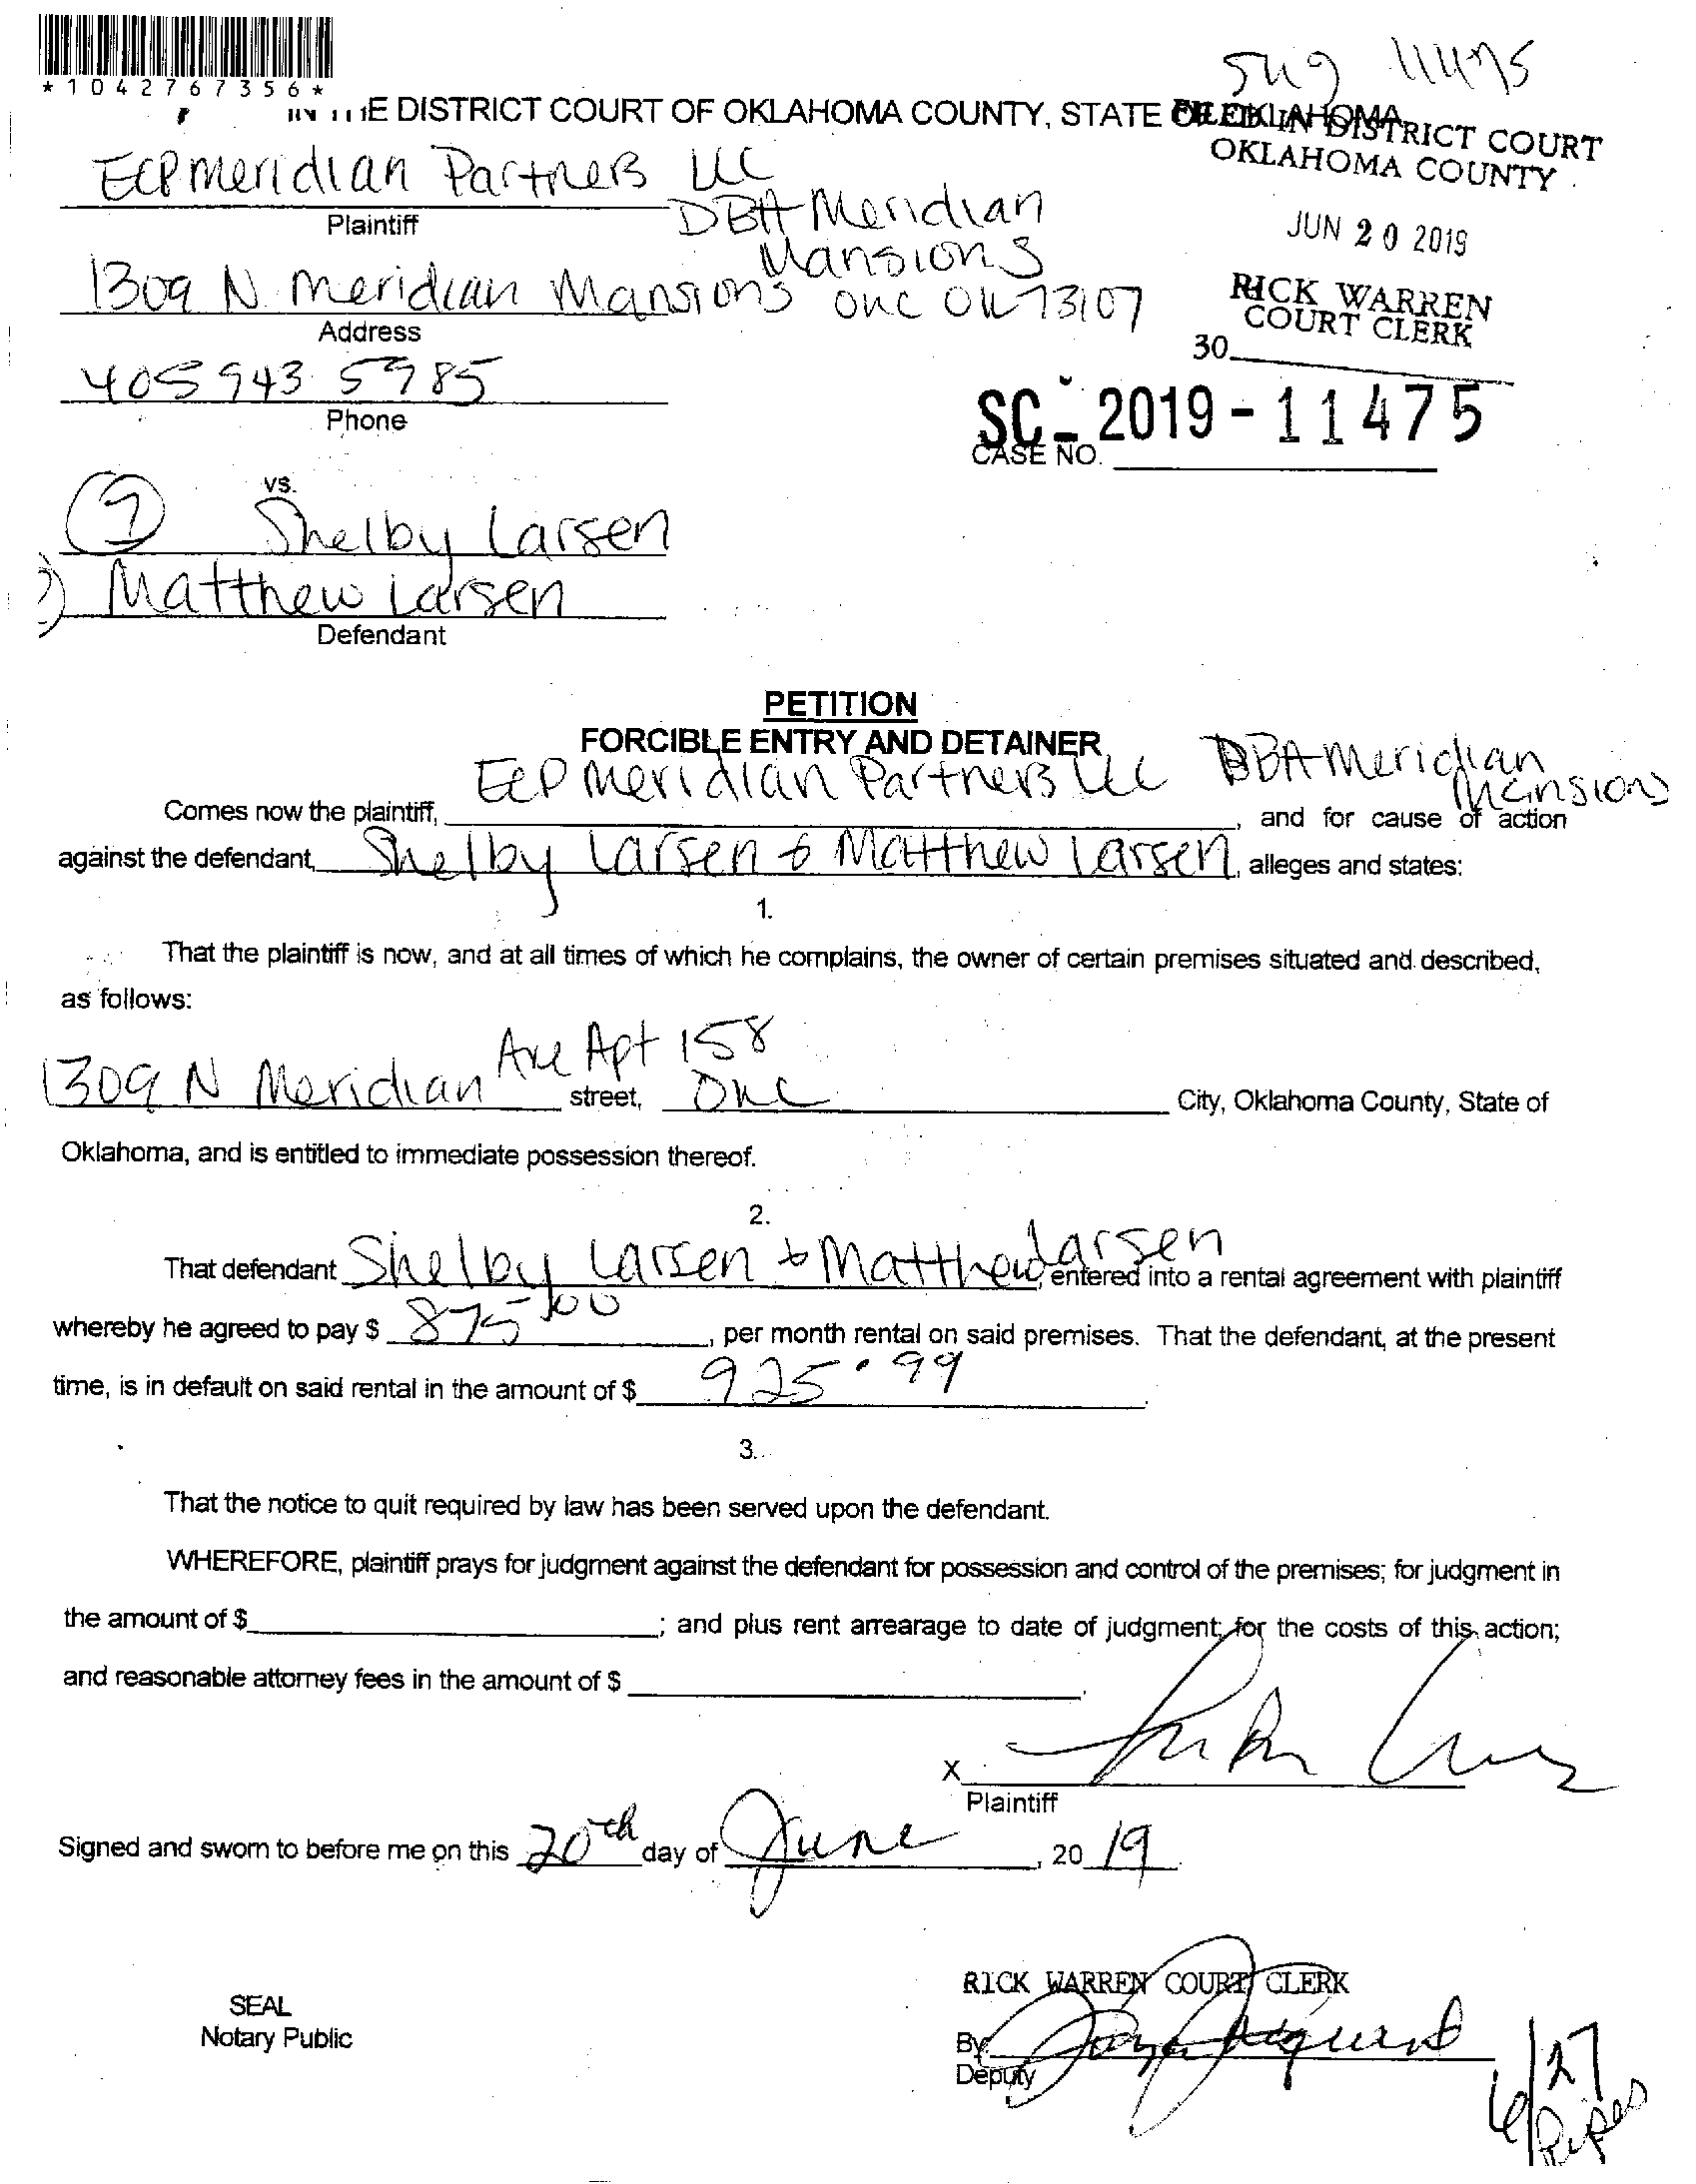 *1042767356*
IN THE DISTRICT COURT OF OKLAHOMA COUNTY, STATE OF OKLAHOMA
FILED IN DISTRICT COURT
OKLAHOMA COUNTY
JUN 20 2019
RICK WARREN
COURT CLERK
30
ECP Meridian Partners LLC
DBA Meridian
Mansions
Plaintiff
1309 N Meridian Mansions OKC OK 73107
Address
405 943 5985
Phone
SC - 2019 - 11475
CASE NO.
vs.
Shelby Larsen
Matthew Larsen
Defendant
PETITION
FORCIBLE ENTRY AND DETAINER
ECP Meridian Partners LLC DBA Meridian
Mansions
Comes now the plaintiff, , and for cause of action
against the defendant, Shelby Larsen & Matthew Larsen, alleges and states:
1.
That the plaintiff is now, and at all times of which he complains, the owner of certain premises situated and described,
as follows:
1309 N Meridian Ave Apt 158 street, OKC City, Oklahoma County, State of
Oklahoma, and is entitled to immediate possession thereof.
2.
That defendant Shelby Larsen & Matthew Larsen, entered into a rental agreement with plaintiff
whereby he agreed to pay $ 875.00, per month rental on said premises. That the defendant, at the present
time, is in default on said rental in the amount of $ 925.99.
3.
That the notice to quit required by law has been served upon the defendant.
WHEREFORE, plaintiff prays for judgment against the defendant for possession and control of the premises; for judgment in
the amount of $ ; and plus rent arrearage to date of judgment; for the costs of this action;
and reasonable attorney fees in the amount of $ .
X
Plaintiff
Signed and sworn to before me on this 20th day of June, 20 19.
RICK WARREN COURT CLERK
SEAL
Notary Public
By
Deputy
6/27